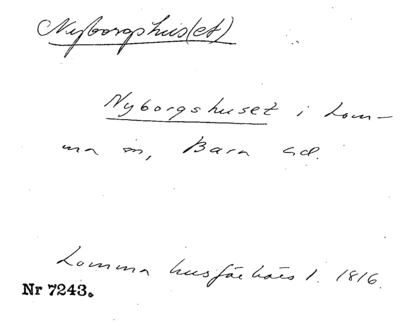 Nyborgshus(et)
Nyborgshuset i Lom-
ma sn, Bara hd.
Lomma husförhörs l. 1816.
Nr 7243.